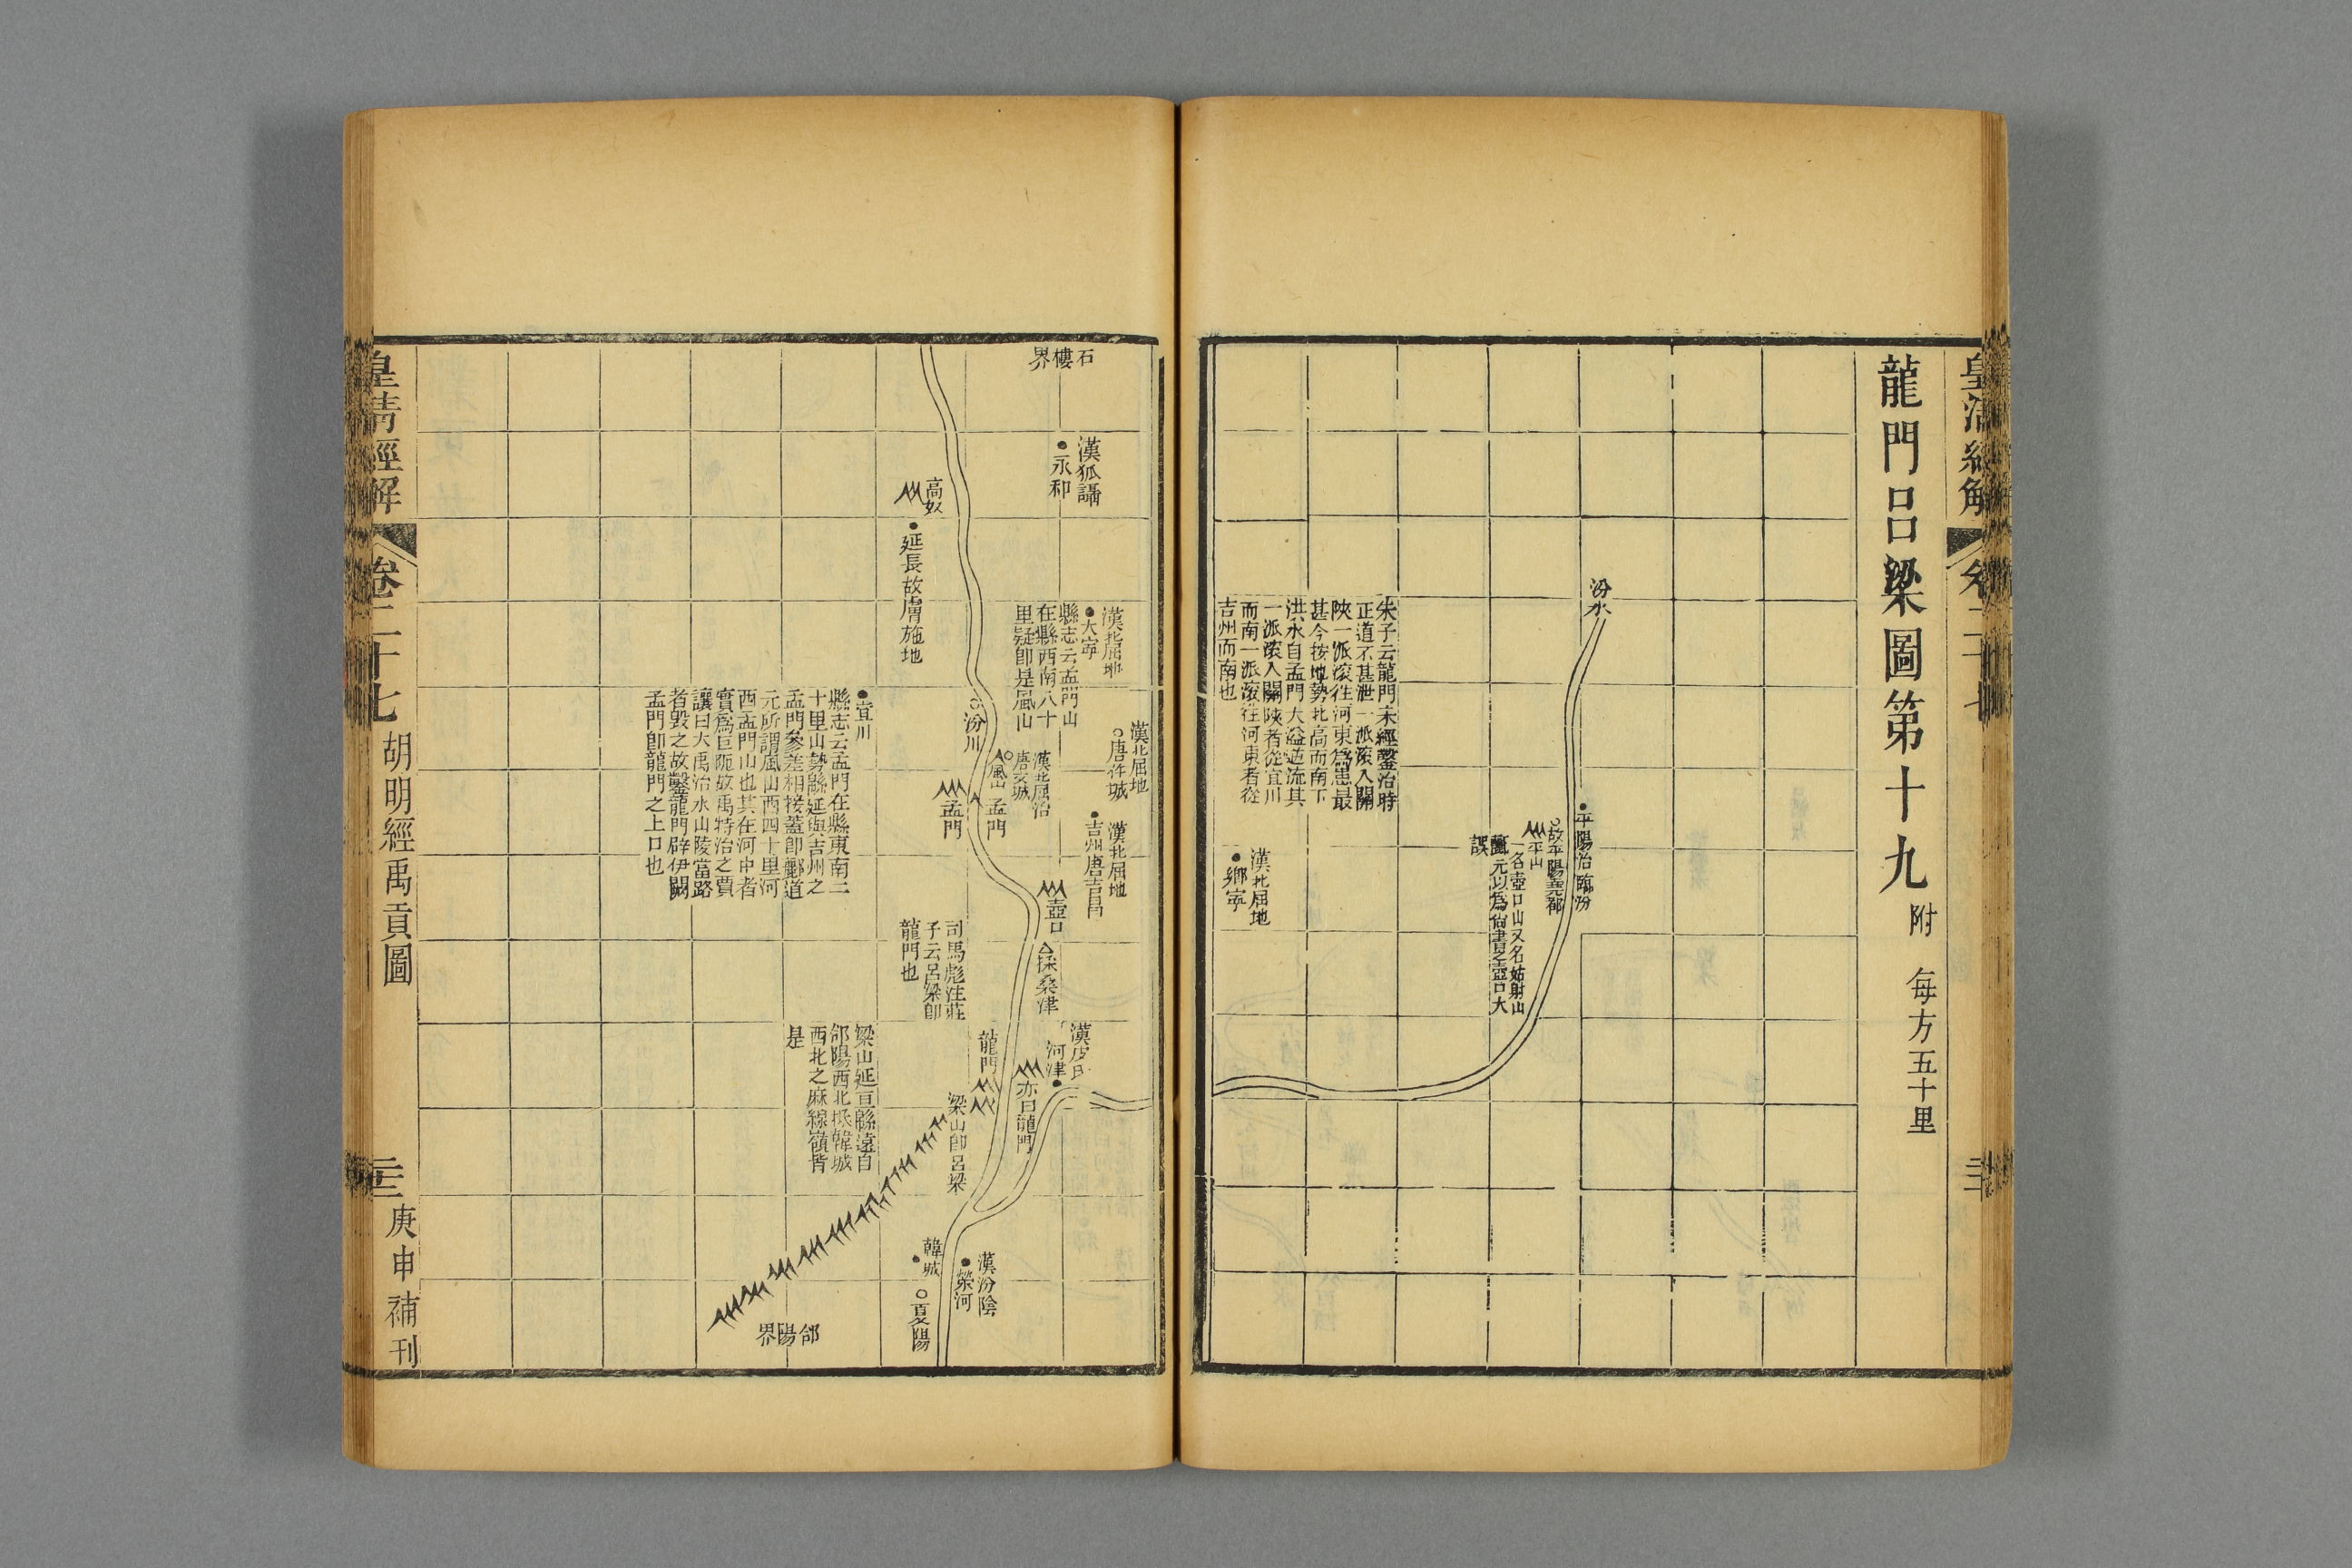 皇清經解
龍門呂梁圖第十九 附 每方五十里
汾水
平陽治 臨汾
故平陽堯都
平山
一名壺口山又名姑射山
酈元以爲尙書之壺口大
誤
朱子云龍門未經鑿治時
正道不甚泄一派滾入關
陝一派滾往河東爲患最
甚今按地勢北高而南下
洪水自孟門大溢逆流其
一派滾入關陝者從宜川
而南一派滾往河東者從
吉州而南也
漢北屈地
鄉寧
石樓界
漢狐讘
永和
漢北屈地
大寧
縣志云孟門山
在縣西南八十
里疑卽是風山
漢北屈地
唐仵城
漢北屈治
唐文城
風山
孟門
漢北屈地
吉州唐吉昌
壺口
採桑津
漢皮氏
河津
亦曰龍門
漢汾陰
榮河
高奴
延長故膚施地
汾川
孟門
宜川
縣志云孟門在縣東南二
十里山勢緜延與吉州之
孟門參差相接蓋卽酈道
元所謂風山西四十里河
西孟門山也其在河中者
實爲巨阨故禹特治之賈
讓曰大禹治水山陵當路
者毀之故鑿龍門辟伊闕
孟門卽龍門之上口也
司馬彪注莊
子云呂梁卽
龍門也
龍門
梁山卽呂梁
梁山延亘緜遠自
郃陽西北抵韓城
西北之麻線嶺皆
是
韓城
夏陽
郃陽界
皇清經解 卷二十七 胡明經禹貢圖 庚申補刊